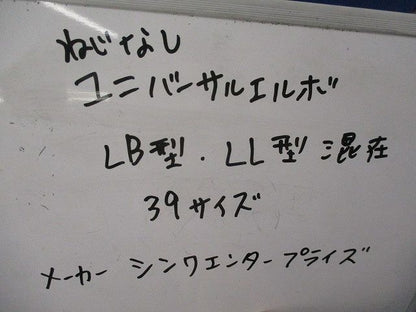 ねじなし
ユニバーサルエルボ
LB型・LL型混在
39サイズ
メーカー シンワエンタープライズ